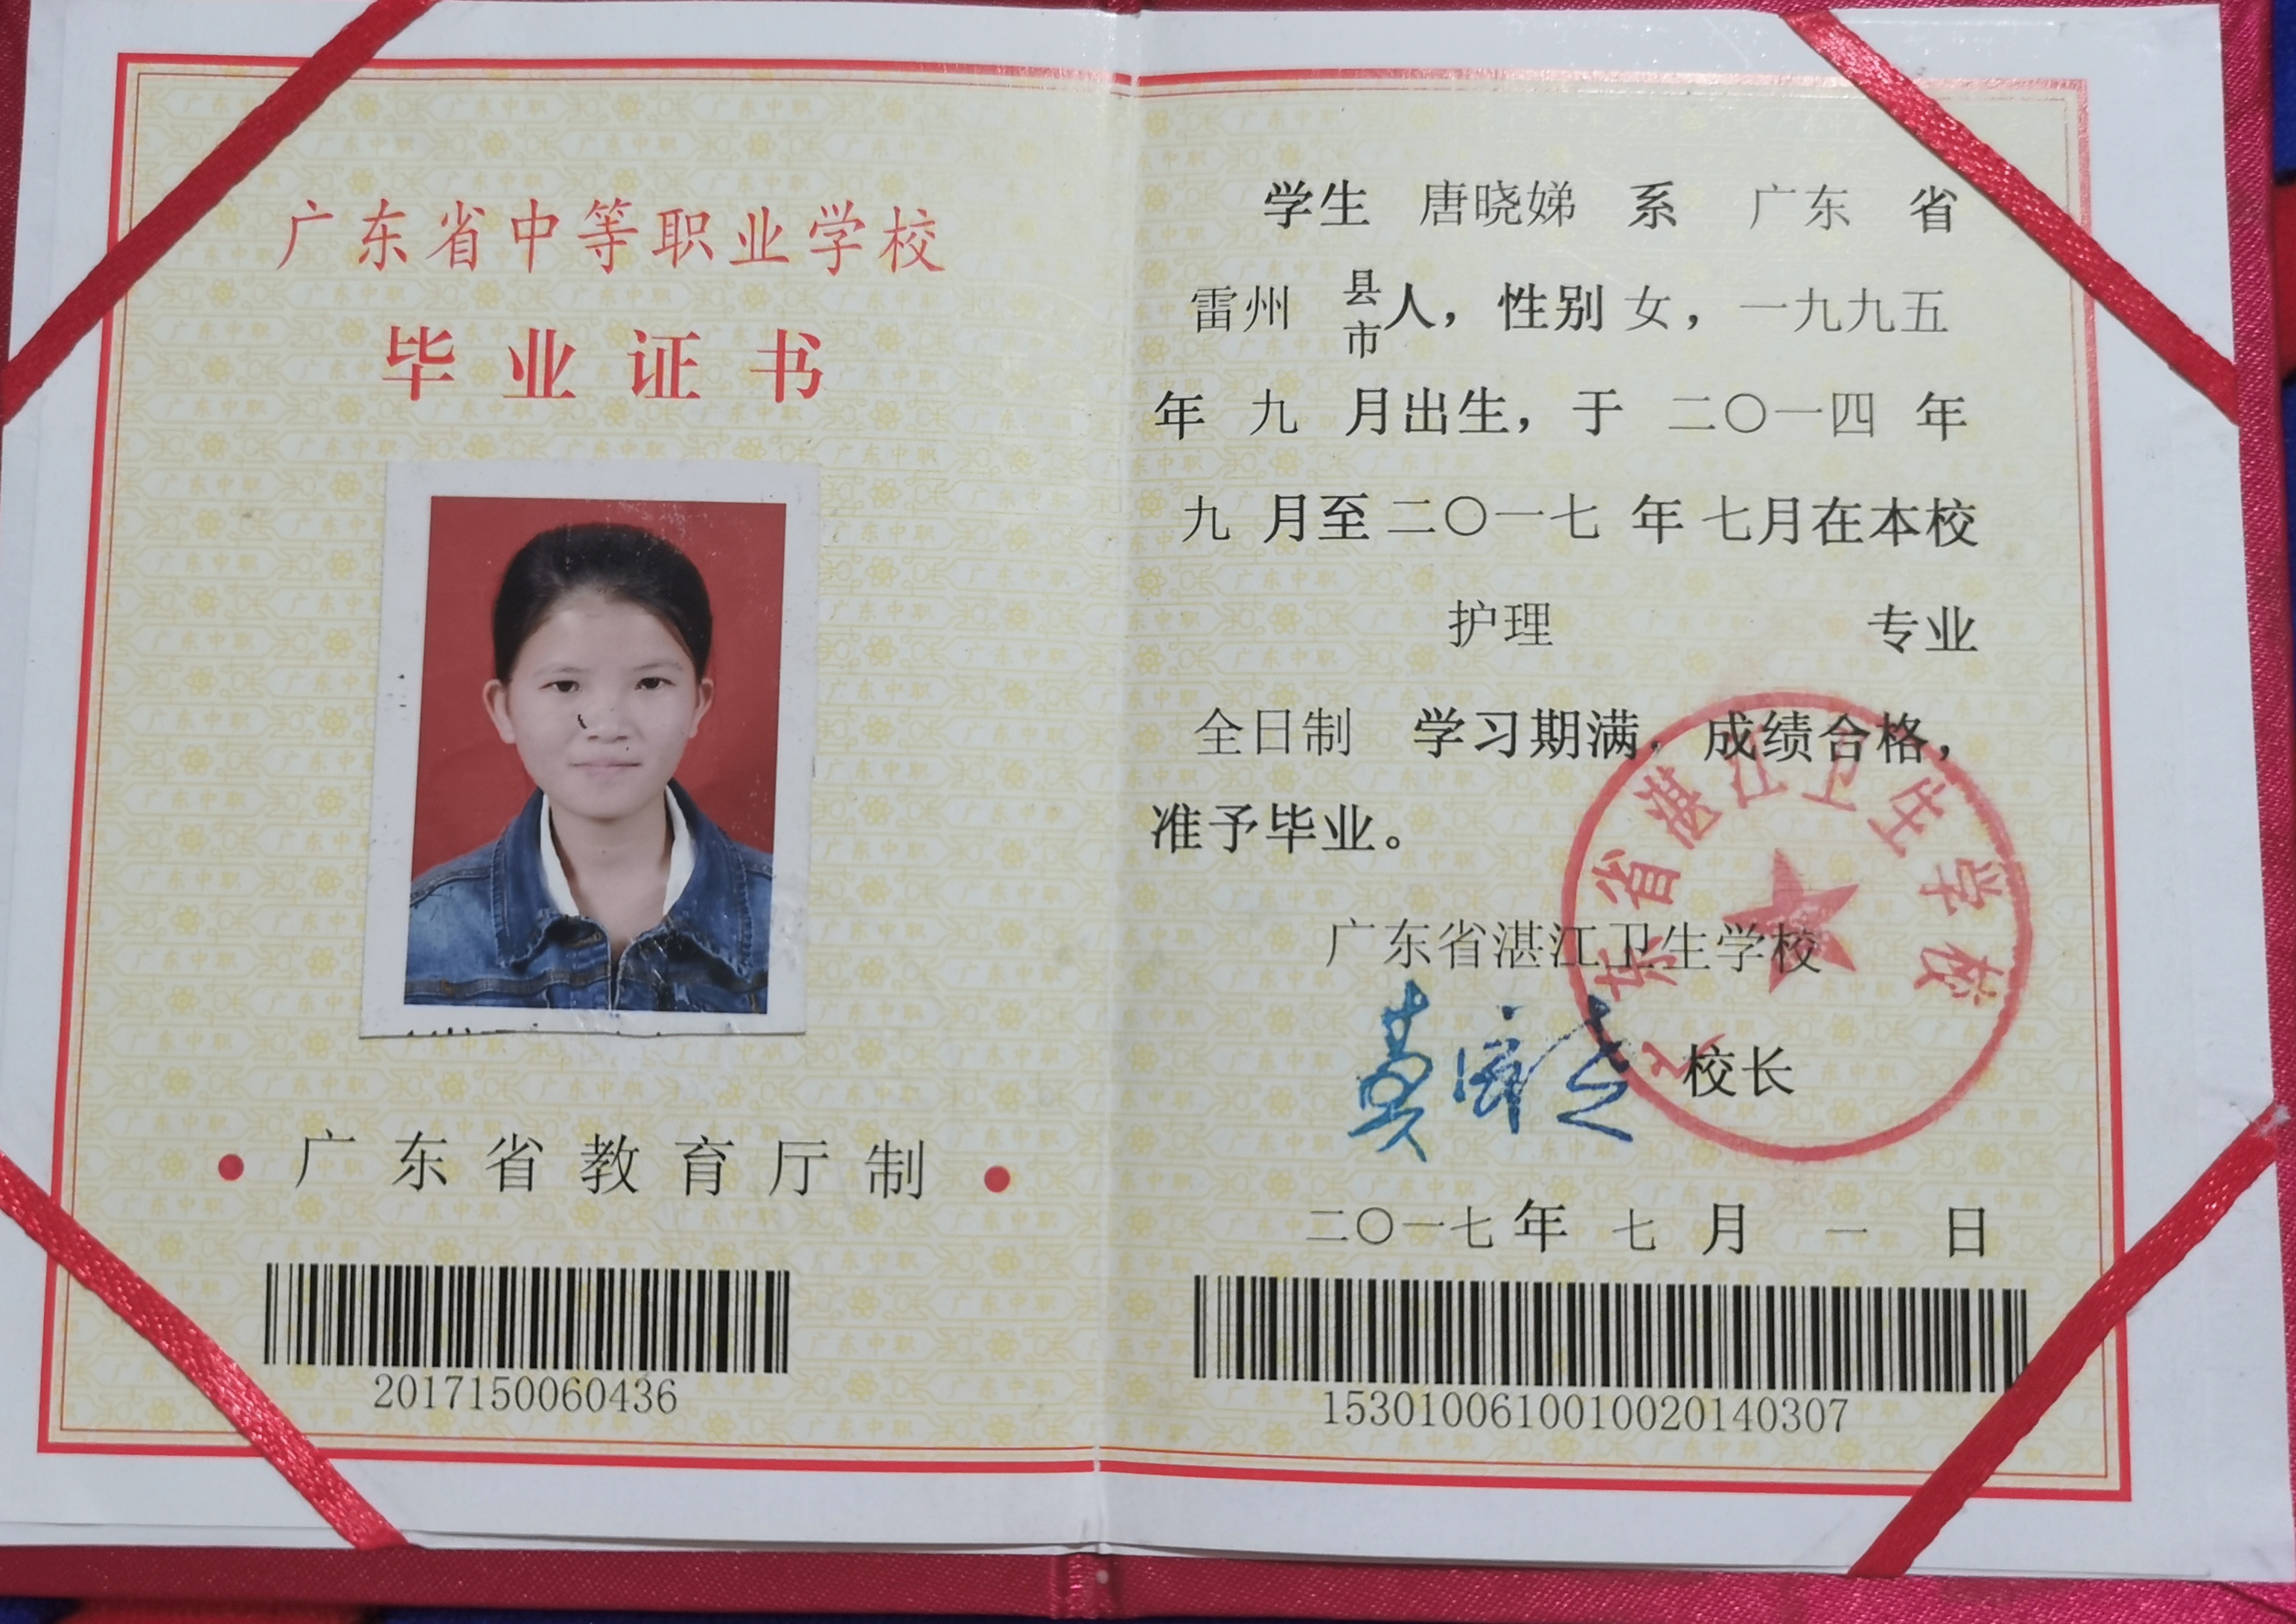 广东省中等职业学校
毕业证书
广东省教育厅制
2017150060436
学生 唐晓娣 系 广东 省
雷州 县市人，性别 女，一九九五
年 九 月出生，于 二〇一四 年
九 月至二〇一七 年 七月在本校
护理 专业
全日制 学习期满，成绩合格，
准予毕业。
广东省湛江卫生学校
广东省湛江卫生学校
校长
二〇一七年 七 月 一 日
1530100610010020140307